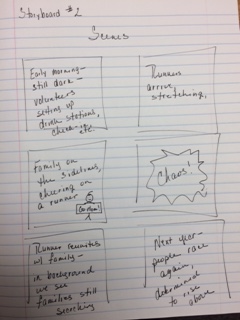 Storyboard #2
Scenes
Early morning-
still dark-
volunteers
setting up
drink stations,
etc.
Runners
arrive
stretching,
Family on
the sidelines,
cheering on
a runner
Chaos!
Runner reunites
w/ family-
in background
we see
families still
searching
Next year-
people race
again,
determined
to rise
above